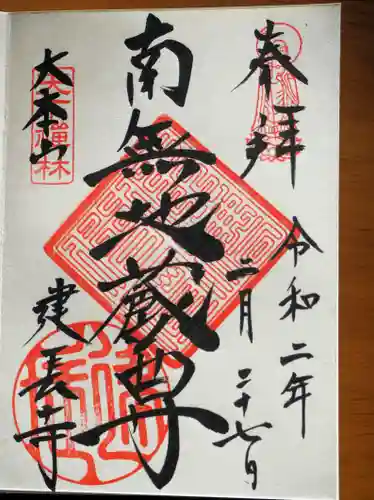 奉拝
令和二年
二月二十七日
南無地蔵尊
大本山
建長寺